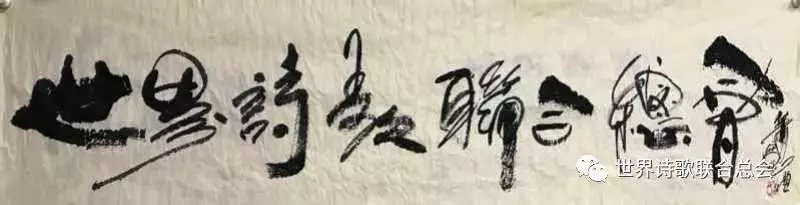 世界詩歌聯合總會
世界诗歌联合总会